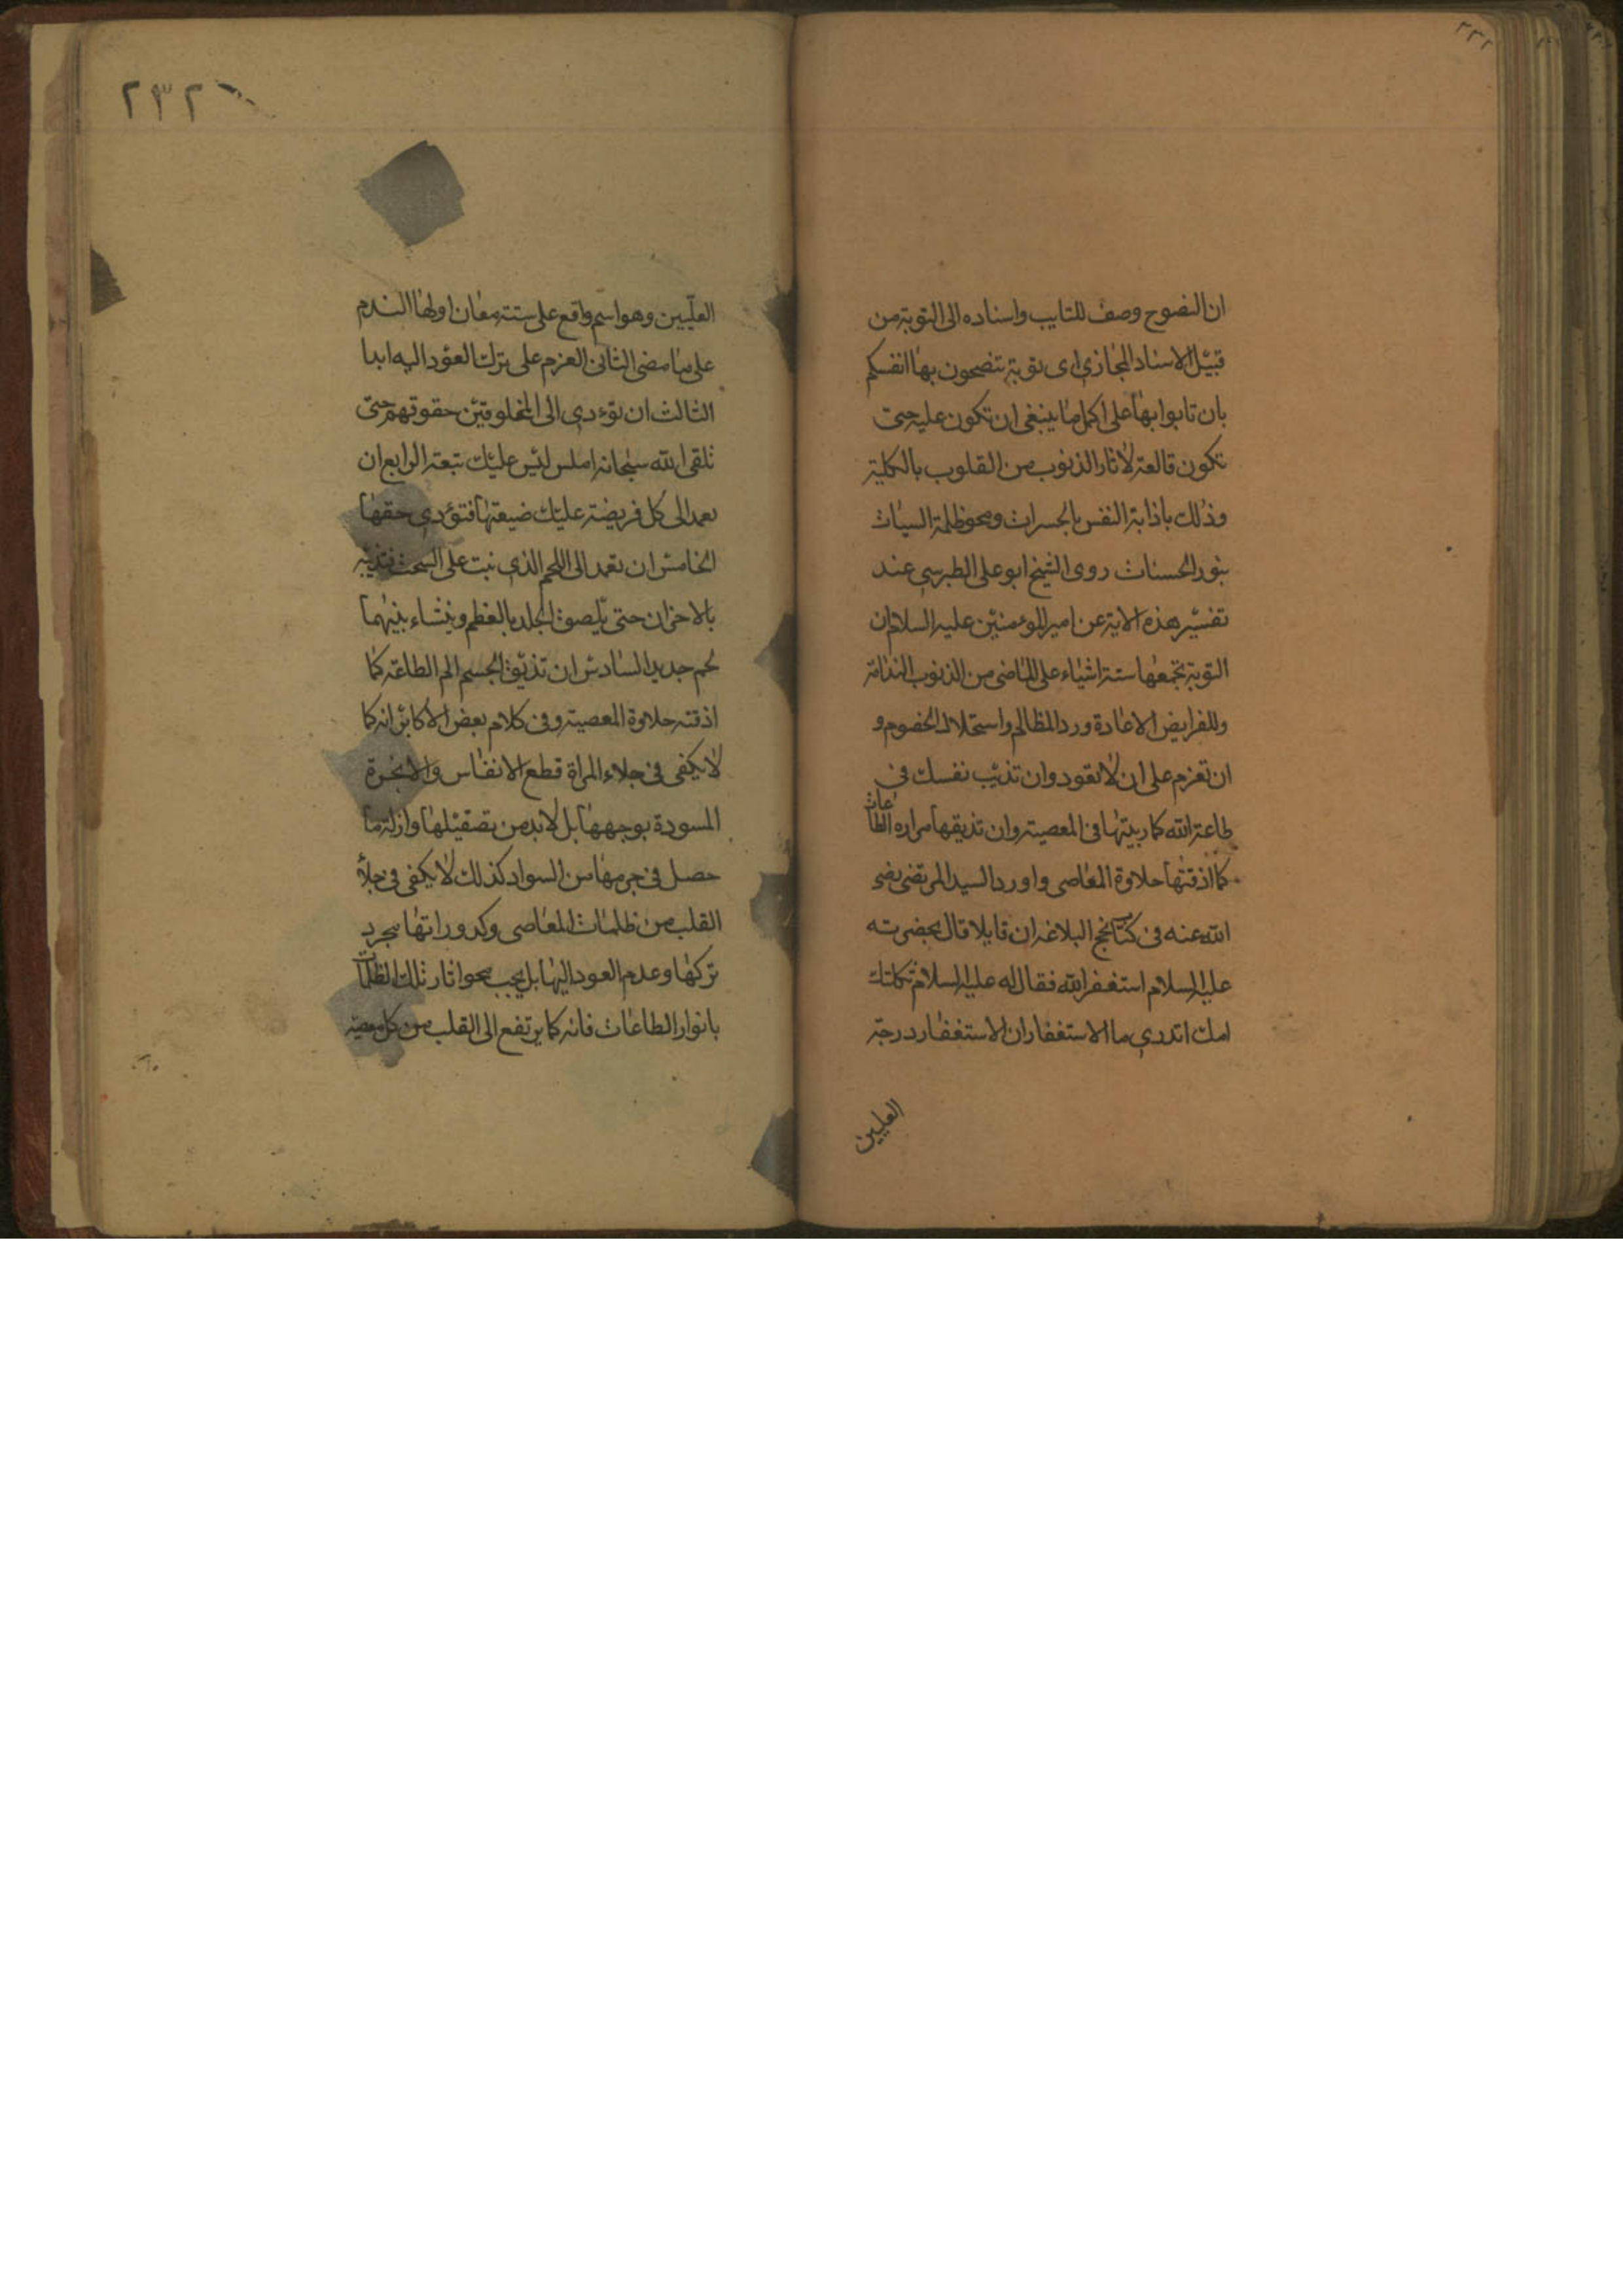 ٢٣٢
ان النصوح وصف للتايب واسناده الى التوبة من
قبيل الاسناد المجازي اى توبة تنصحون بها انفسكم
بان تابوا بها على اكمل ما ينبغى ان تكون عليه حتى
تكون قالعة لاثار الذنوب من القلوب بالكلية
وذلك باذابة النفس بالحسرات ومحو ظلمة السيات
بنور الحسنات روى الشيخ ابو على الطبرسي عند
تفسير هذه الاية عن امير المؤمنين عليه السلام ان
التوبة تجمعها ستة اشياء على الماضى من الذنوب الندامة
وللفرايض الاعادة ورد المظالم واستحلال الخصوم و
ان تعزم على ان لا تعود وان تذيب نفسك فى
طاعة الله كما ربيتها فى المعصية وان تذيقها مراره الطاعات
كما اذقتها حلاوة المعاصى واورد السيد المرتضى رضى
الله عنه فى كتاب نهج البلاغه ان قايلا قال بحضرته
عليه السلام استغفر الله فقال له عليه السلام ثكلتك
امك اتدري ما الاستغفار ان الاستغفار درجة
العليين
٢٣٢
العليين وهو اسم واقع على ستة معان اولها الندم
على ما مضى الثانى العزم على ترك العود اليه ابدا
الثالث ان تؤدي الى المخلوقين حقوقهم حتى
تلقى الله سبحانه املس ليس عليك تبعة الرابع ان
تعمد الى كل فريضة عليك ضيعتها فتؤدي حقها
الخامس ان تعمد الى اللحم الذي نبت على السحت فتذيبه
بالاحزان حتى يلصق الجلد بالعظم وينشاء بينهما
لحم جديد السادس ان تذيق الجسم الم الطاعة كما
اذقته حلاوة المعصية وفى كلام بعض الاكابر انه كما
لا يكفى فى جلاء المراة قطع الانفاس والابخرة
المسودة بوجهها بل لابد من تصقيلها وازالة ما
حصل فى جرمها من السواد كذلك لا يكفى فى جلأ
القلب من ظلمات المعاصى وكدوراتها مجرد
تركها وعدم العود اليها بل يجب محو اثار تلك الظلمات
بانوار الطاعات فانه كما يرتفع الى القلب من كل معصية